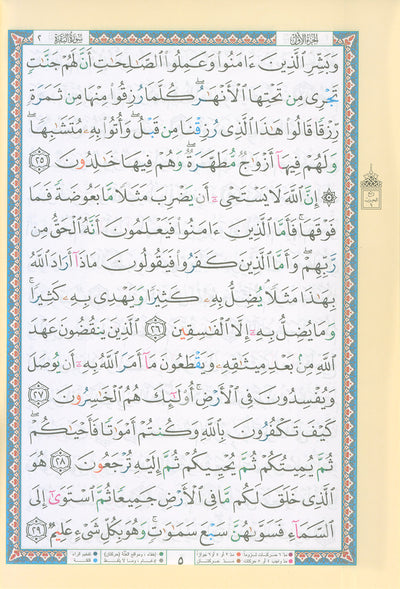 الجزء الأول
سورة البقرة ٢
وَبَشِّرِ ٱلَّذِينَ ءَامَنُوا۟ وَعَمِلُوا۟ ٱلصَّـٰلِحَـٰتِ أَنَّ لَهُمْ جَنَّـٰتٍ
تَجْرِى مِن تَحْتِهَا ٱلْأَنْهَـٰرُ ۖ كُلَّمَا رُزِقُوا۟ مِنْهَا مِن ثَمَرَةٍ
رِّزْقًا قَالُوا۟ هَـٰذَا ٱلَّذِى رُزِقْنَا مِن قَبْلُ ۖ وَأُتُوا۟ بِهِۦ مُتَشَـٰبِهًا ۖ
وَلَهُمْ فِيهَآ أَزْوَٰجٌ مُّطَهَّرَةٌ ۖ وَهُمْ فِيهَا خَـٰلِدُونَ ٢٥
۞ إِنَّ ٱللَّهَ لَا يَسْتَحْىِۦٓ أَن يَضْرِبَ مَثَلًا مَّا بَعُوضَةً فَمَا
فَوْقَهَا ۚ فَأَمَّا ٱلَّذِينَ ءَامَنُوا۟ فَيَعْلَمُونَ أَنَّهُ ٱلْحَقُّ مِن
رَّبِّهِمْ ۖ وَأَمَّا ٱلَّذِينَ كَفَرُوا۟ فَيَقُولُونَ مَاذَآ أَرَادَ ٱللَّهُ
بِهَـٰذَا مَثَلًا ۘ يُضِلُّ بِهِۦ كَثِيرًا وَيَهْدِى بِهِۦ كَثِيرًا ۚ
وَمَا يُضِلُّ بِهِۦٓ إِلَّا ٱلْفَـٰسِقِينَ ٢٦ ٱلَّذِينَ يَنقُضُونَ عَهْدَ
ٱللَّهِ مِنۢ بَعْدِ مِيثَـٰقِهِۦ وَيَقْطَعُونَ مَآ أَمَرَ ٱللَّهُ بِهِۦٓ أَن يُوصَلَ
وَيُفْسِدُونَ فِى ٱلْأَرْضِ ۚ أُو۟لَـٰٓئِكَ هُمُ ٱلْخَـٰسِرُونَ ٢٧
كَيْفَ تَكْفُرُونَ بِٱللَّهِ وَكُنتُمْ أَمْوَٰتًا فَأَحْيَـٰكُمْ ۖ
ثُمَّ يُمِيتُكُمْ ثُمَّ يُحْيِيكُمْ ثُمَّ إِلَيْهِ تُرْجَعُونَ ٢٨ هُوَ
ٱلَّذِى خَلَقَ لَكُم مَّا فِى ٱلْأَرْضِ جَمِيعًا ثُمَّ ٱسْتَوَىٰٓ إِلَى
ٱلسَّمَآءِ فَسَوَّىٰهُنَّ سَبْعَ سَمَـٰوَٰتٍ ۚ وَهُوَ بِكُلِّ شَىْءٍ عَلِيمٌ ٢٩
٥